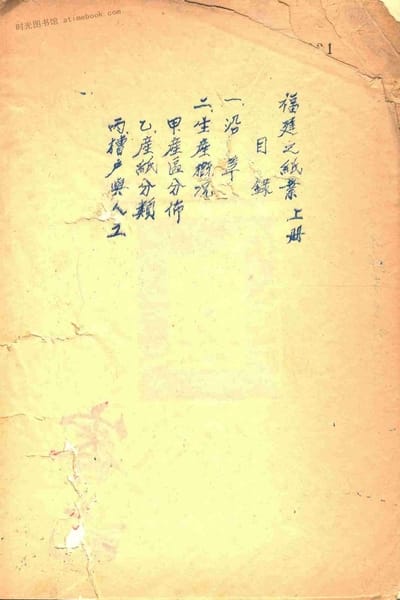 时光图书馆 atimebook.com
福建之紙業上册
目錄
一、沿革
二、生產概況
甲產區分佈
乙產紙分類
丙槽户與人工